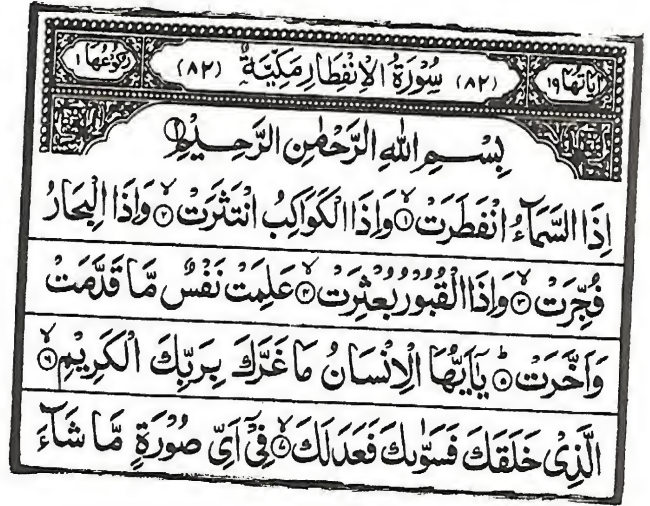 اٰيَاتُهَا ١٩ (٨٢) سُوْرَةُ الْاِنْفِطَارِ مَكِّيَّةٌ (٨٢) رُكُوْعُهَا ١
بِسْمِ اللهِ الرَّحْمٰنِ الرَّحِيْمِ
اِذَا السَّمَآءُ انْفَطَرَتْ ۙ۝١ وَاِذَا الْكَوَاكِبُ انْتَثَرَتْ ۙ۝٢ وَاِذَا الْبِحَارُ
فُجِّرَتْ ۙ۝٣ وَاِذَا الْقُبُوْرُ بُعْثِرَتْ ۙ۝٤ عَلِمَتْ نَفْسٌ مَّا قَدَّمَتْ
وَاَخَّرَتْ ؕ۝٥ يٰۤاَيُّهَا الْاِنْسَانُ مَا غَرَّكَ بِرَبِّكَ الْكَرِيْمِ ۙ۝٦
الَّذِيْ خَلَقَكَ فَسَوّٰىكَ فَعَدَلَكَ ۙ۝٧ فِيْۤ اَيِّ صُوْرَةٍ مَّا شَآءَ